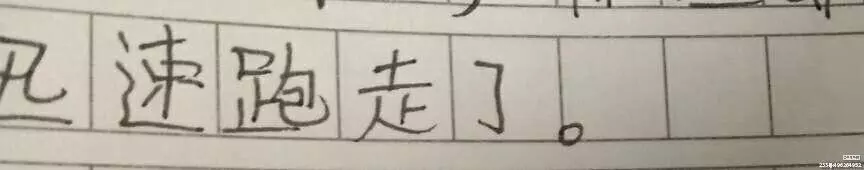 迅速跑走了。